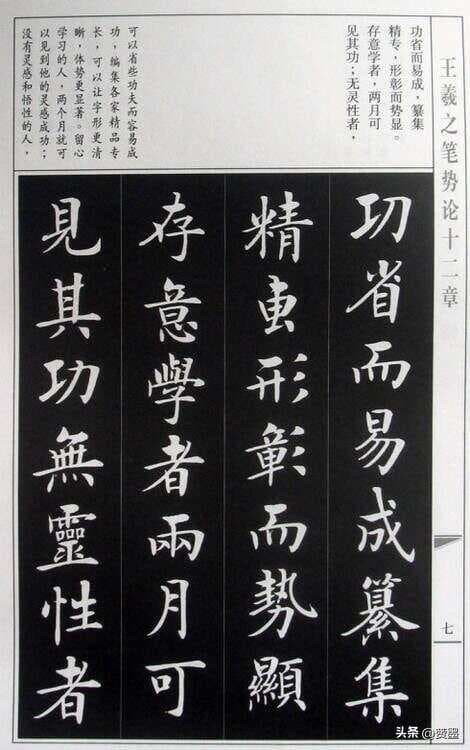 王羲之笔势论十二章
七
功省而易成,纂集
精专,形彰而势显。
存意学者,两月可
见其功;无灵性者,
可以省些功夫而容易成
功,编集各家精品专
长,可以让字形更清
晰,体势更显著。留心
学习的人,两个月就可
以见到他的灵感成功;
没有灵感和悟性的人,
功省而易成纂集
精專形彰而勢顯
存意學者兩月可
見其功無靈性者
头条